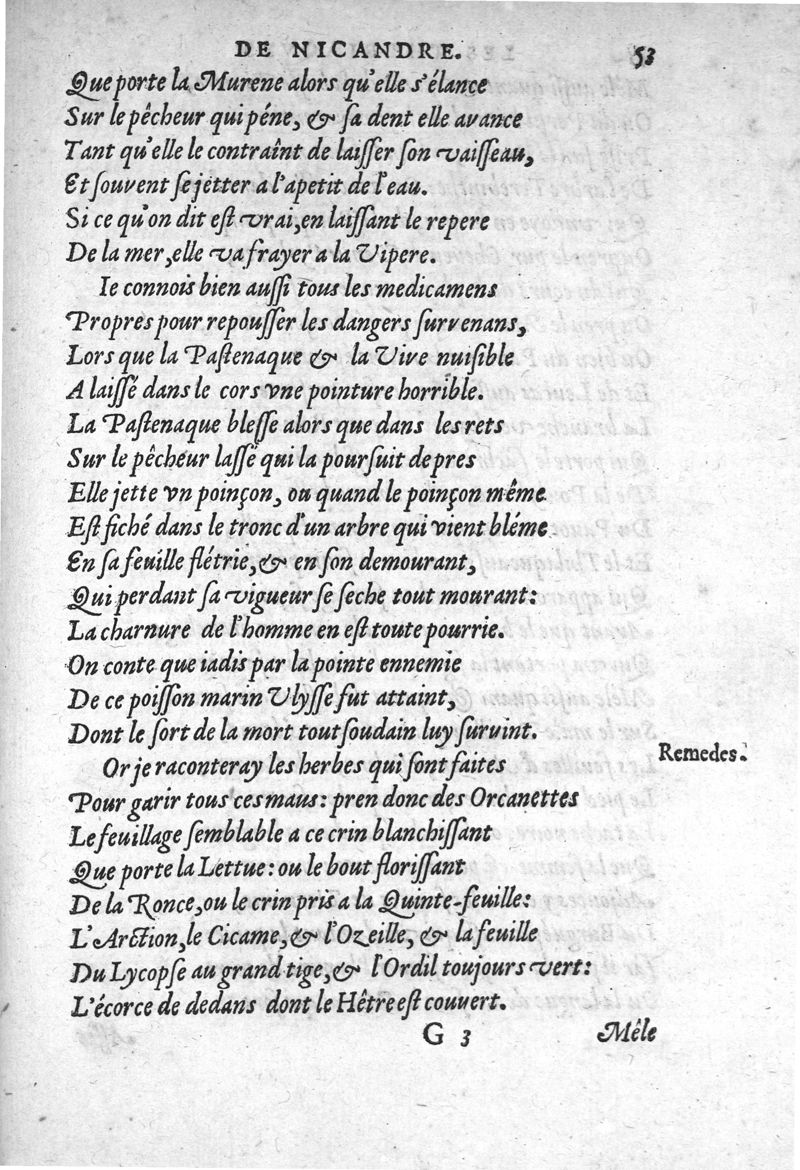 DE NICANDRE. 53
Que porte la Murene alors qu'elle s'élance
Sur le pêcheur qui péne, & sa dent elle avance
Tant qu'elle le contraînt de laisser son vaisseau,
Et souvent se jetter a l'apetit de l'eau.
Si ce qu'on dit est vrai, en laissant le repere
De la mer, elle va frayer a la Vipere.
Ie connois bien aussi tous les medicamens
Propres pour repousser les dangers survenans,
Lors que la Pastenaque & la Vive nuisible
A laissé dans le cors vne pointure horrible.
La Pastenaque blesse alors que dans les rets
Sur le pêcheur lassé qui la poursuit de pres
Elle jette vn poinçon, ou quand le poinçon même
Est fiché dans le tronc d'un arbre qui vient bléme
En sa feuille flétrie, & en son demourant,
Qui perdant sa vigueur se seche tout mourant:
La charnure de l'homme en est toute pourrie.
On conte que iadis par la pointe ennemie
De ce poisson marin Ulysse fut attaint,
Dont le sort de la mort tout soudain luy survint.
Or je raconteray les herbes qui sont faites
Remedes.
Pour garir tous ces maus: pren donc des Orcanettes
Le feuillage semblable a ce crin blanchissant
Que porte la Lettue: ou le bout florissant
De la Ronce, ou le crin pris a la Quinte-feuille:
L'Arction, le Cicame, & l'Ozeille, & la feuille
Du Lycopse au grand tige, & l'Ordil toujours vert:
L'écorce de dedans dont le Hêtre est couvert.
G 3 Mêle